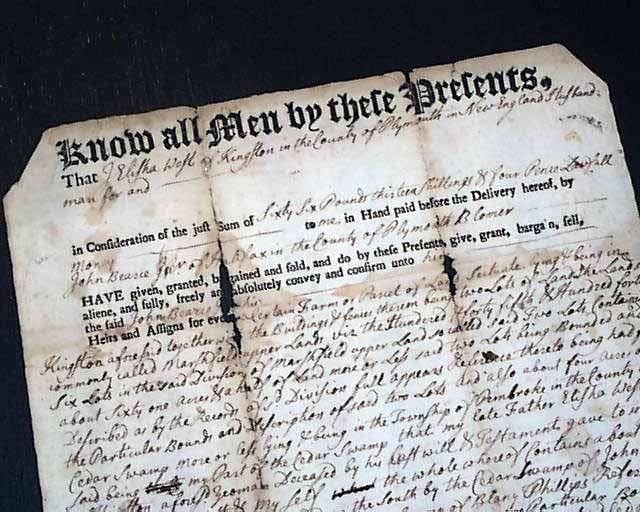 Know all Men by these Presents,
That I Elisha West of Kingston in the County of Plymouth in New England Husband=
man for and
in Consideration of the just Sum of Sixty Six Pounds thirteen shillings & four Pence Lawfull
Money to me in Hand paid before the Delivery hereof, by
John Bearce Junr of Hallifax in the County of Plymouth
HAVE given, granted, bargained and sold, and do by these Presents, give, grant, bargain, sell,
aliene, and fully, freely and absolutely convey and confirm unto him
the said John Bearce his
Heirs and Assigns for ever a certain Farm or Parcel of Land Scituate lying & being in
Kingston aforesaid together with the Buildings & fences thereon being two Lots of Land the Land
commonly called Marshfield upper Lands viz the Hundred & forty fifth & Hundred forty
Six Lots in the said Division of Marshfield upper Land so called said Two Lots Contain
about Sixty one Acres & a half of Land more or Less said two Lots being Bound and
Described as by the Records of sd Division full appears Reference thereto being had
the Particular Bounds and Description of said two Lots and also about four Acres
Cedar Swamp more or less lying & being in the Township of Pembroke in the County
said being my Part of the Cedar Swamp that my late Father Elisha West
aforesd Yeoman Deceased by his Last will & Testament gave to
my self the whole whereof Contains about
the South by the Cedar Swamp of John
of Blany Phillips
Particular